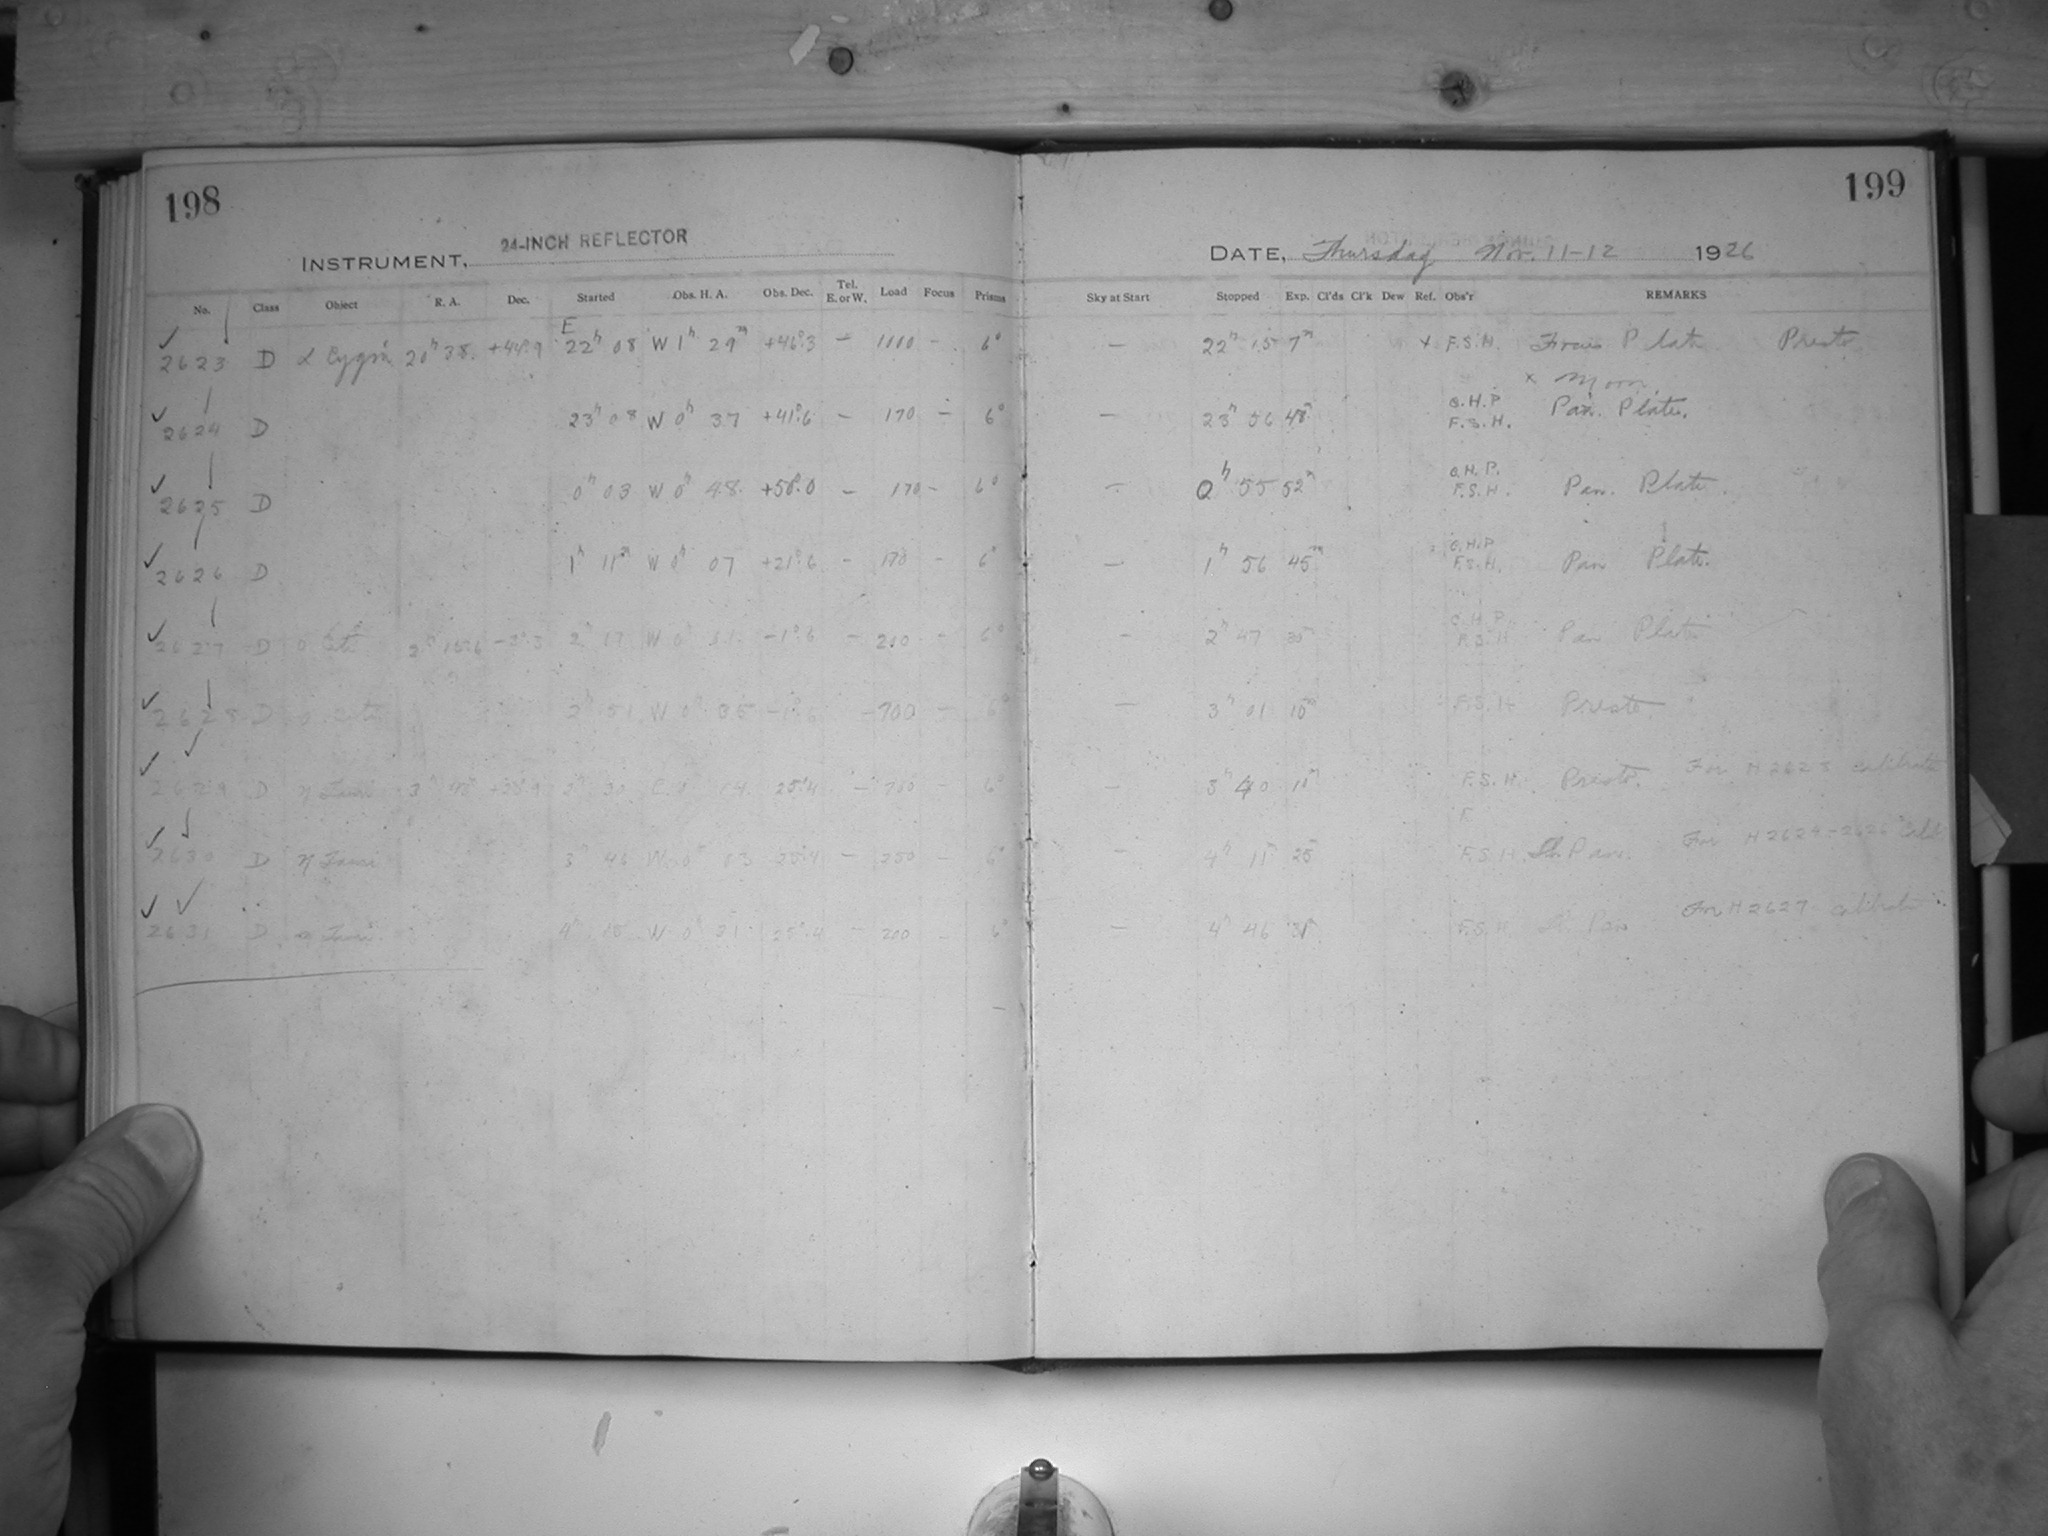 198
199
INSTRUMENT, 24-INCH REFLECTOR
DATE, Thursday Nov. 11-12 1926
No. Class Object R. A. Dec. Started Obs. H. A. Obs. Dec. Tel. E. or W. Load Focus Prisms Sky at Start Stopped Exp. Cl'ds Cl'k Dew Ref. Obs'r REMARKS
E
✓ 2623 D α Cygni 20h 38. +44.9 22h 08 W 1h 29m +46°.3 — 1110 — 6° — 22h 15 7m x F.S.H. Focus Plate Presto
x Moon
✓ 2624 D 23h 08 W 0h 37 +41°.6 — 170 — 6° — 23h 56 48m O.H.P. F.S.H. Pan. Plate.
✓ 2625 D 0h 03 W 0h 48. +58.0 — 170 — 6° — 0h 55 52m O.H.P. F.S.H. Pan. Plate.
✓ 2626 D 1h 11m W 0h 07 +21°.6 — 170 — 6° — 1h 56 45m O.H.P. F.S.H. Pan Plate.
✓ 2627 D o Ceti 2h -3°.3 2h 17 W 0h -1°.6 — 200 — 6° — 2h 47 30m O.H.P. F.S.H. Pan Plate
✓ 2628 D o Ceti 2h 51 W 0h 35 -1°.6 — 700 — 6° — 3h 01 10m F.S.H. Presto
✓ 2629 D η Tauri 3h 3h 30 E 0 14 25°.4 — 700 — 6° — 3h 40 10m F.S.H. Presto. For H 2628 calibrate
✓ 2630 D η Tauri 3h 46 W 0h 03 25°.4 — 250 — 6° — 4h 11m 25 F.S.H. Pan. For H 2624-2626 Calib
✓ 2631 D η Tauri 4h 15 W 0h 31 25°.4 — 200 — 6° — 4h 46 31m F.S.H. Pan For H 2627 calibrate